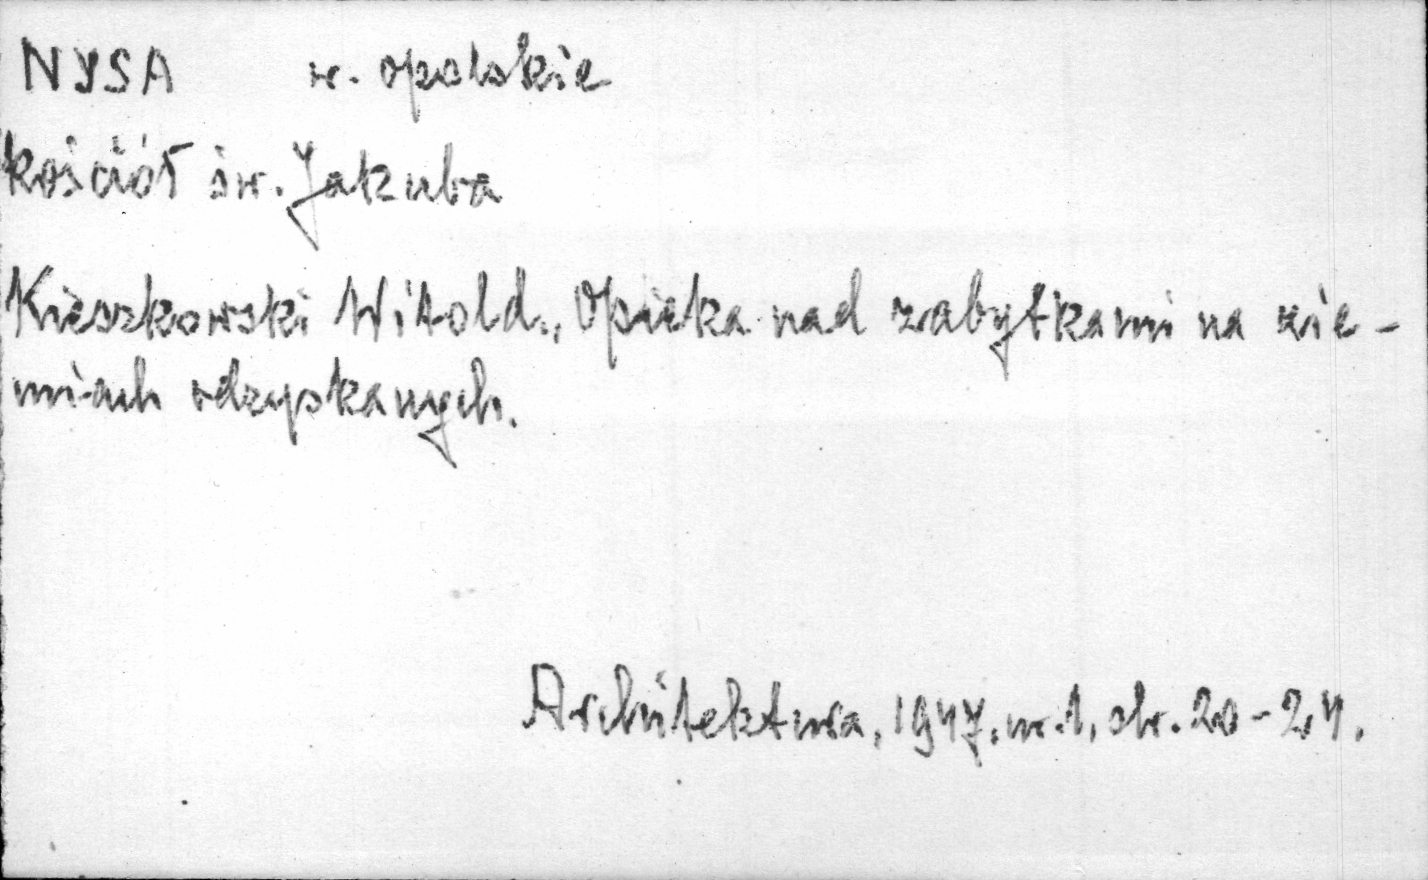 NYSA w. opolskie
kościół św. Jakuba
Kieszkowski Witold., Opieka nad zabytkami na zie-
miach odzyskanych.
Architektura, 1947, nr. 1, str. 20-24.